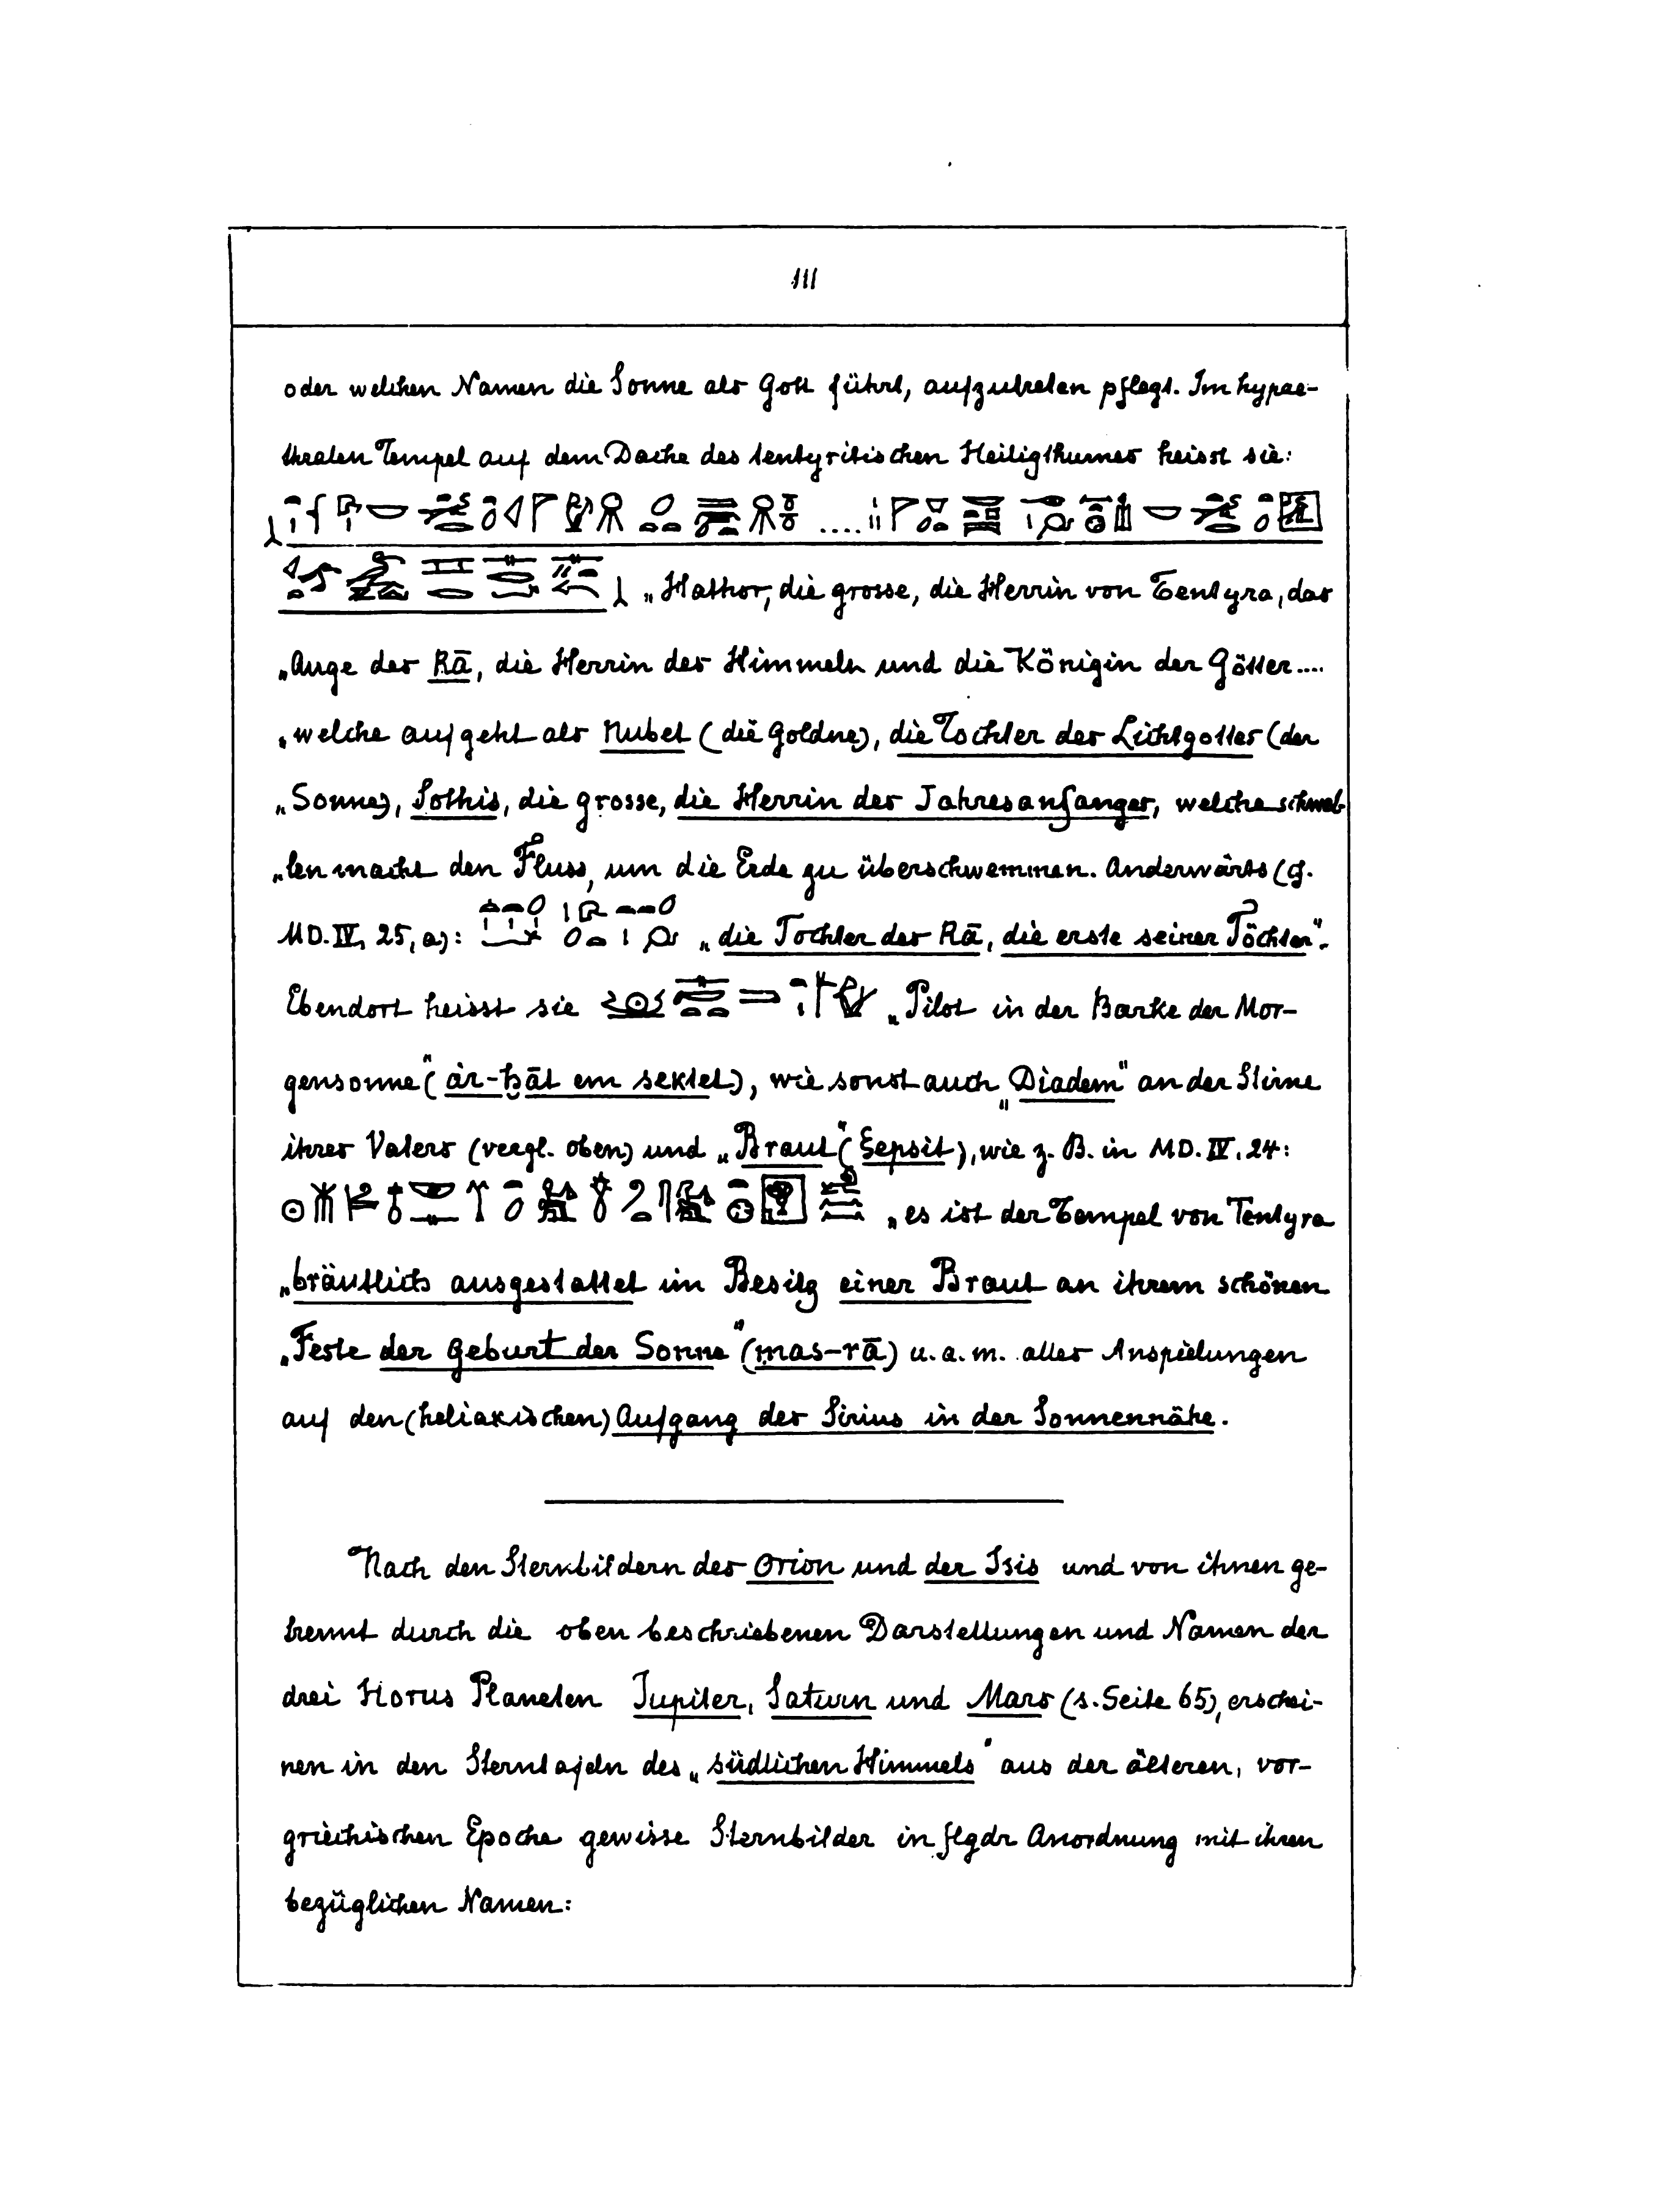 111
oder welchen Namen die Sonne als Gott führt, aufzutreten pflegt. Im hypae-
thralen Tempel auf dem Dache des tentyritischen Heiligthumes heisst sie:
„Hathor, die grosse, die Herrin von Tentyra, das
„Auge des Rā, die Herrin des Himmels und die Königin der Götter....
„welche aufgeht als Nubet (die Goldne), die Tochter des Lichtgottes (der
„Sonne), Sothis, die grosse, die Herrin des Jahresanfanges, welche schwel-
„len macht den Fluss, um die Erde zu überschwemmen. Anderwärts (cf.
MD. IV, 25, a): „die Tochter des Rā, die erste seiner Töchter".
Ebendort heisst sie „Pilot in der Barke der Mor-
gensonne" (ȧr-ḥāt em sektet), wie sonst auch „Diadem" an der Stirne
ihres Vaters (vergl. oben) und „Braut" (šepsit), wie z. B. in MD. IV. 24:
„es ist der Tempel von Tentyra
„bräutlich ausgestattet im Besitz einer Braut an ihrem schönen
„Feste der Geburt der Sonne" (mas-rā) u. a. m. alles Anspielungen
auf den (heliakischen) Aufgang des Sirius in der Sonnennähe.
Nach den Sternbildern des Orion und der Isis und von ihnen ge-
trennt durch die oben beschriebenen Darstellungen und Namen der
drei Horus Planeten Jupiter, Saturn und Mars (s. Seite 65), erschei-
nen in den Sterntafeln des „südlichen Himmels" aus der älteren, vor-
griechischen Epoche gewisse Sternbilder in flgdr Anordnung mit ihren
bezüglichen Namen: